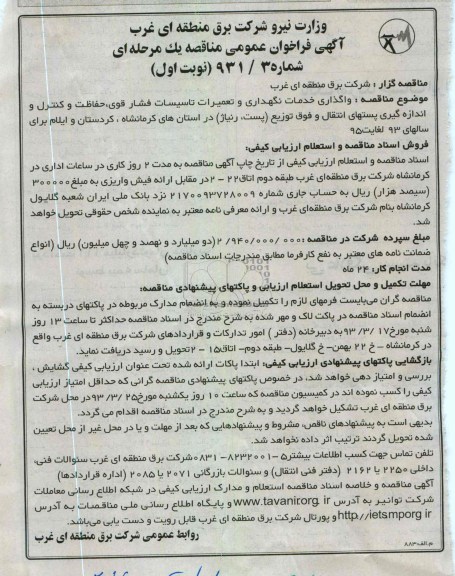 وزارت نیرو شرکت برق منطقه ای غرب
آگهی فراخوان عمومی مناقصه یك مرحله ای
شماره۳ / ۹۳۱ (نوبت اول)
مناقصه گزار : شرکت برق منطقه ای غرب
موضوع مناقصه : واگذاری خدمات نگهداری و تعمیرات تاسیسات فشار قوی،حفاظت و کنترل و
اندازه گیری پستهای انتقال و فوق توزیع (پست، رنیاژ) در استان های کرمانشاه ، کردستان و ایلام برای
سالهای ۹۳ لغایت۹۵
فروش اسناد مناقصه و استعلام ارزیابی کیفی:
اسناد مناقصه و استعلام ارزیابی کیفی از تاریخ چاپ آگهی مناقصه به مدت ۲ روز کاری در ساعات اداری در
کرمانشاه شرکت برق منطقه‌ای غرب طبقه دوم اتاق۲۲ - ۲در مقابل ارائه فیش واریزی به مبلغ۳۰۰۰۰۰
(سیصد هزار) ریال به حساب جاری شماره ۲۱۷۰۰۹۳۷۲۸۰۰۹ نزد بانک ملی ایران شعبه گلایول
کرمانشاه بنام شرکت برق منطقه‌ای غرب و ارائه معرفی نامه معتبر به نماینده شخص حقوقی تحویل خواهد
شد.
مبلغ سپرده شرکت در مناقصه :۲/۹۴۰/۰۰۰/۰۰۰(دو میلیارد و نهصد و چهل میلیون) ریال (انواع
ضمانت نامه های معتبر به نفع کارفرما مطابق مندرجات اسناد مناقصه)
مدت انجام کار: ۲۴ ماه
مهلت تکمیل و محل تحویل استعلام ارزیابی و پاکتهای پیشنهادی مناقصه:
مناقصه گران می‌بایست فرمهای لازم را تکمیل نموده و به انضمام مدارک مربوطه در پاکتهای دربسته به
انضمام اسناد مناقصه در پاکت لاک و مهر شده به شرح مندرج در اسناد مناقصه حداکثر تا ساعت ۱۳ روز
شنبه مورخ۱۷ /۹۳/۳به دبیرخانه (دفتر ) امور تدارکات و قراردادهای شرکت برق منطقه ای غرب واقع
در کرمانشاه – خ ۲۲ بهمن- خ گلایول- طبقه دوم- اتاق۱۵ - ۲تحویل و رسید دریافت نماید.
بازگشایی پاکتهای پیشنهادی ارزیابی کیفی: ابتدا پاکات ارائه شده تحت عنوان ارزیابی کیفی گشایش ،
بررسی و امتیاز دهی خواهد شد، در خصوص پاکتهای پیشنهادی مناقصه گرانی که حداقل امتیاز ارزیابی
کیفی را کسب نموده اند در کمیسیون مناقصه که ساعت ۱۰ روز یکشنبه مورخ۲۵ /۹۳/۳در محل شرکت
برق منطقه ای غرب تشکیل خواهد گردید و به شرح مندرج در اسناد مناقصه اقدام می گردد.
بدیهی است به پیشنهادهای ناقص، مشروط و پیشنهادهایی که بعد از مهلت و یا در محل غیر از محل تعیین
شده تحویل گردند ترتیب اثر داده نخواهد شد.
تلفن تماس جهت کسب اطلاعات بیشتر۵-۸۲۳۲۰۰۱- ۰۸۳۱شرکت برق منطقه ای غرب سئوالات فنی،
داخلی ۲۲۵۰ یا ۲۱۶۲ (دفتر فنی انتقال) و سئوالات بازرگانی ۲۰۷۱ یا ۲۰۸۵ (اداره قراردادها)
آگهی مناقصه و خلاصه اسناد مناقصه استعلام و مدارک ارزیابی کیفی در شبکه اطلاع رسانی معاملات
شرکت توانیر به آدرس www.tavanir.org.ir و پایگاه اطلاع رسانی ملی مناقصات به آدرس
http://iets.mporg.ir و پورتال شرکت برق منطقه ای غرب قابل رویت و دست یابی می‌باشد.
روابط عمومی شرکت برق منطقه ای غرب
م.الف:۸۸۳